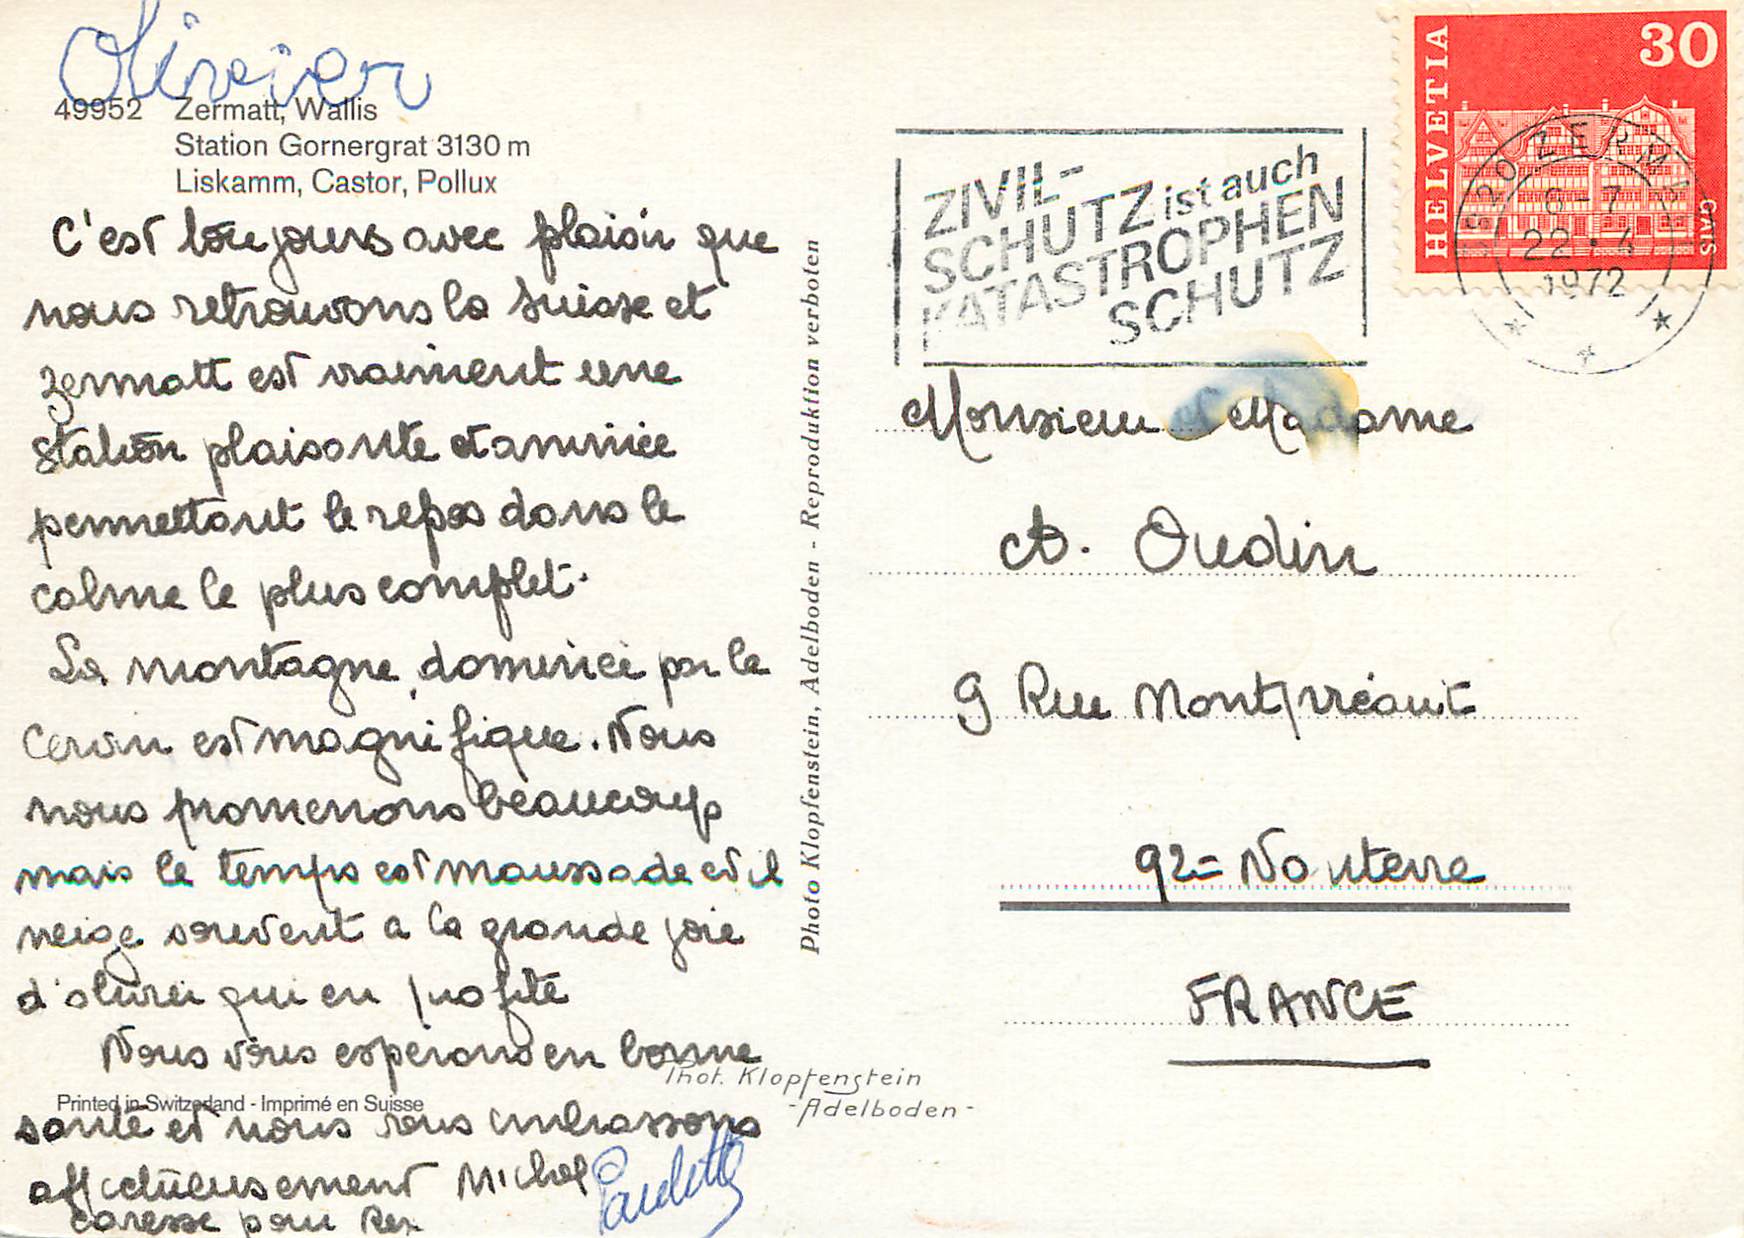 Olivier
49952 Zermatt, Wallis
Station Gornergrat 3130 m
Liskamm, Castor, Pollux
C'est toujours avec plaisir que
nous retrouvons la Suisse et
Zermatt est vraiment une
station plaisante et animée
permettant le repos dans le
calme le plus complet.
La montagne dominée par le
Cervin est magnifique. Nous
nous promenons beaucoup
mais le temps est maussade et il
neige souvent a la grande joie
d'olivier qui en profite
Nous vous esperons en bonne
santé et nous vous embrassons
affectueusement Michel Paulette
Caresse pour Rex
Printed in Switzerland - Imprimé en Suisse
Photo Klopfenstein, Adelboden - Reproduktion verboten
Phot. Klopfenstein
- Adelboden -
ZIVIL-
SCHUTZ ist auch
KATASTROPHEN
SCHUTZ
HELVETIA
30
GAIS
3920 ZERMATT
6-7
22.4
1972
Monsieur et Madame
A. Oudin
9 Rue Montpvréaut
92 = Nanterre
FRANCE